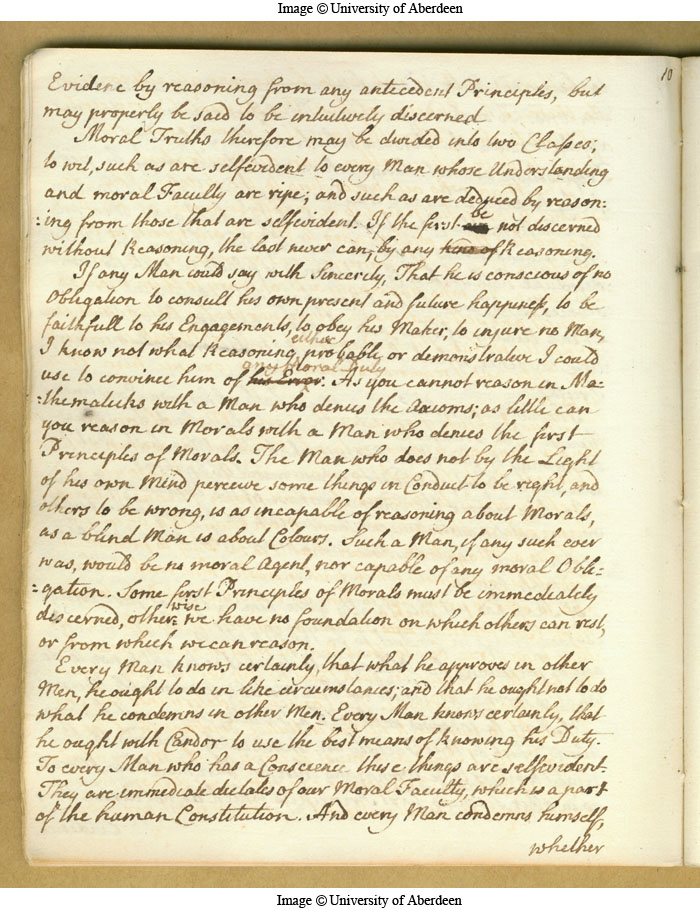 Image © University of Aberdeen
10
Evidenc by reasoning from any antecedent Principles, but
may properly be said to be intuitively discerned
Moral Truths therefore may be divided into two Classes;
to wit, such as are selfevident to every Man whose Understanding
and moral Faculty are ripe; and such as are deduced by reason:
:ing from those that are selfevident. If the first be not discerned
without Reasoning, the last never can, by any kind of Reasoning.
If any Man could say with Sincerity, That he is conscious of no
Obligation to consult his own present and future happiness, to be
faithfull to his Engagements, to obey his Maker, to injure no Man,
I know not what Reasoning, either probable or demonstrative I could
use to convince him of his Error any Moral Duty. As you cannot reason in Ma=
=thematicks with a Man who denies the Axioms; as little can
you reason in Morals with a Man who denies the first
Principles of Morals. The Man who does not by the Light
of his own Mind perceive some things in Conduct to be right, and
others to be wrong, is as incapable of reasoning about Morals,
as a blind Man is about Colours. Such a Man, if any such ever
was, would be no moral Agent, nor capable of any moral Obli=
=gation. Some first Principles of Morals must be immediately
discerned, otherwise we have no foundation on which others can rest,
or from which we can reason.
Every Man knows certainly, that what he approves in other
Men, he ought to do in like circumstances; and that he ought not to do
what he condemns in other Men. Every Man knows certainly, that
he ought with Candor to use the best means of knowing his Duty.
To every Man who has a Conscience these things are selfevident.
They are immediate dictates of our Moral Faculty, which is a part
of the human Constitution. And every Man condemns himself,
whether
Image © University of Aberdeen